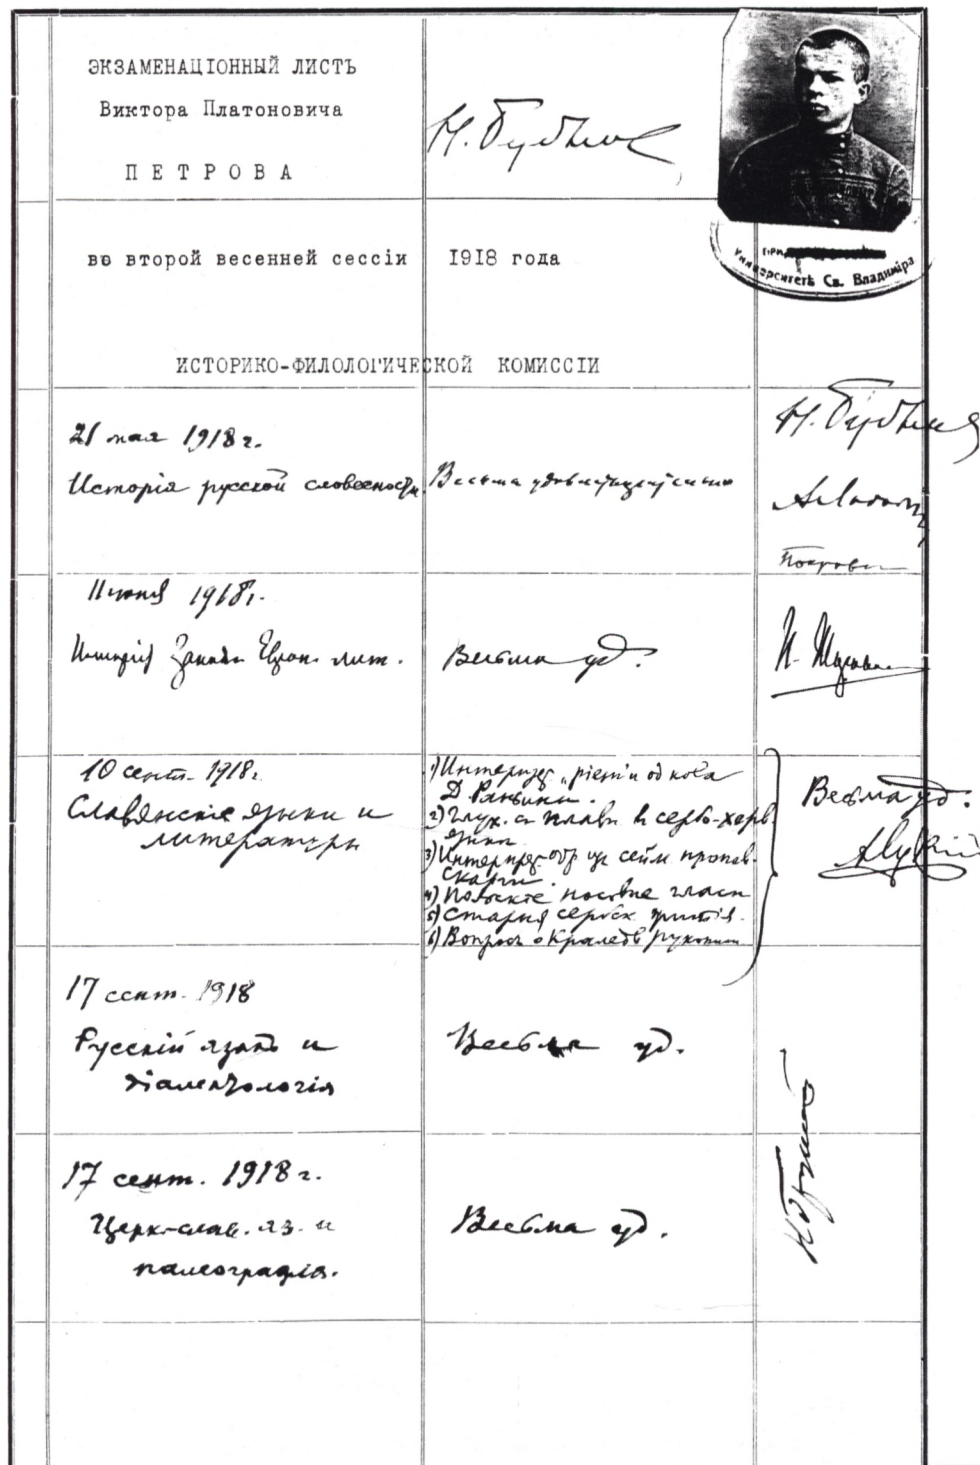 ЭКЗАМЕНАЦІОННЫЙ ЛИСТЬ
Виктора Платоновича
ПЕТРОВА
во второй весенней сессіи 1918 года
Университетъ Св. Владиміра
ИСТОРИКО-ФИЛОЛОГИЧЕСКОЙ КОМИССІИ
21 мая 1918 г.
Исторія русской словесности Весьма удовлетворительно
11 іюня 1918 г.
Исторія Западн. Европ. лит. Весьма уд.
10 сент. 1918 г.
Славянскіе языки и
литературы
1) Интерпрет.
2) Глух. и плавн. в сербо-хорв.
языкѣ
3) Интерпрет. отр. из сейм. пропов.
Скарги.
4) Польскіе носовые гласн.
5) Старыя сербск. житія.
6) Вопросъ о Краледв. рукописи
Весьма уд.
17 сент. 1918
Русскій языкъ и
діалектологія
Весьма уд.
17 сент. 1918 г.
Церк-слав. яз. и
палеографія.
Весьма уд.